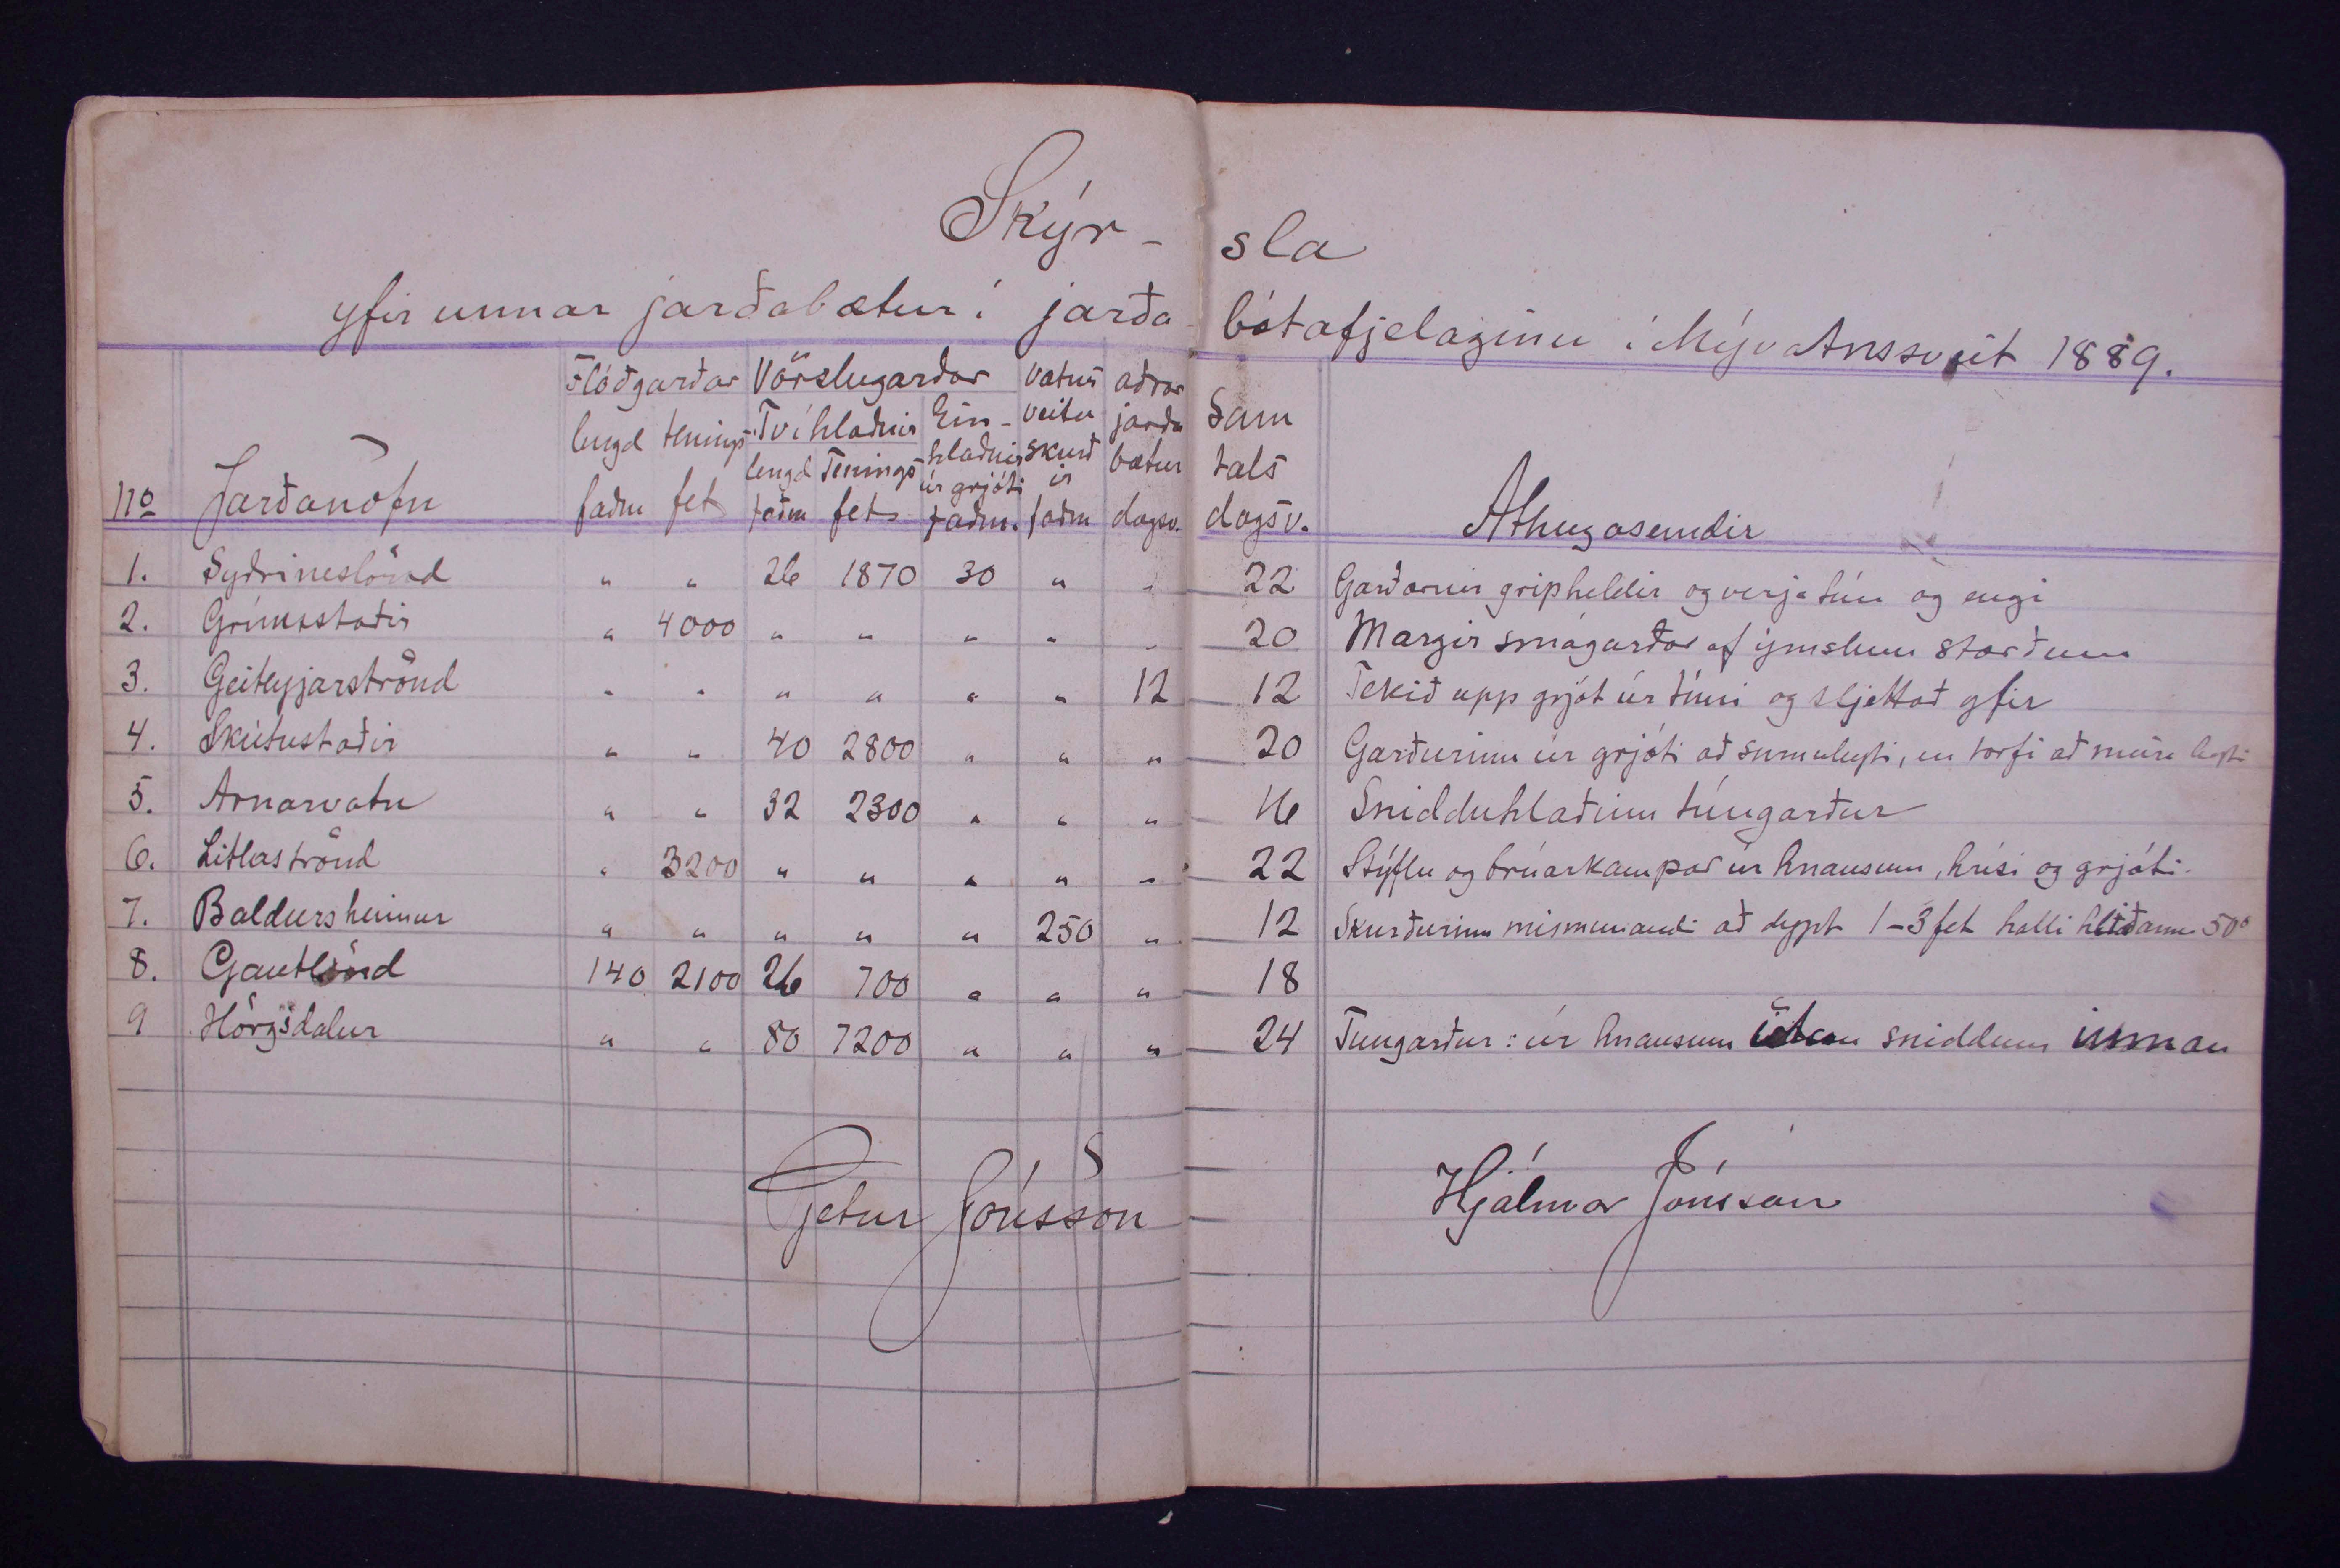 Skýr- sla
yfir unnar jarðabætur í jarða- bótafjelaginu í Mývatnssveit 1889.
Flóðgarðar Vörslugarðar vatns aðrar
lengd tenings Tvíhlaðnir Ein- veitu jarða Sam
lengd Tenings hlaðnir skurð bætur tals
No Jarðanöfn faðm fet faðm fet úr grjóti faðm. ir faðm dagsv. dagsv. Athugasemdir
1. Syðrineslönd " " 26 1870 30 " " 22 Garðarnir gripheldir og verja tún og engi
2. Grímsstaðir " 4000 " " " " " 20 Margir smágarðar af ýmslum stærðum
3. Geiteyjarströnd " " " " " " 12 12 Tekið upp grjót úr túni og sljettað yfir
4. Skútustaðir " " 40 2800 " " " 20 Garðurinn úr grjóti að sumuleyti, en torfi að meira leyti
5. Arnarvatn " " 32 2300 " " " 16 Snidduhlaðinn túngarður
6. Litlaströnd " 3200 " " " " " 22 Stýflu og brúarkampar úr hnausum, hrísi og grjóti.
7. Baldursheimur " " " " " 250 " 12 Skurðurinn mismunandi að dýpt 1-3 fet halli hliðanna 50°
8. Gautlönd 140 2100 26 700 " " " 18
9 Hörgsdalur " " 80 7200 " " " 24 Túngarður: úr hnausum utan sniddum innan
Pjetur Jónsson Hjálmar Jónsson